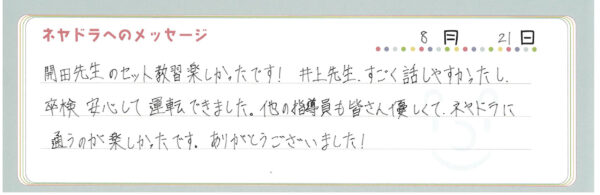 ネヤドラへのメッセージ
8月 21日
開田先生のセット教習楽しかったです! 井上先生、すごく話しやすかったし、
卒検 安心して 運転できました。他の指導員も皆さん優しくて、ネヤドラに
通うのが楽しかったです。ありがとうございました!